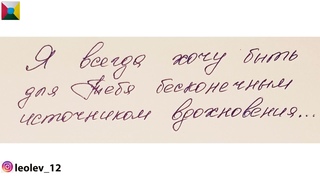 Я всегда хочу быть
для Тебя бесконечным
источником вдохновения...
leolev_12